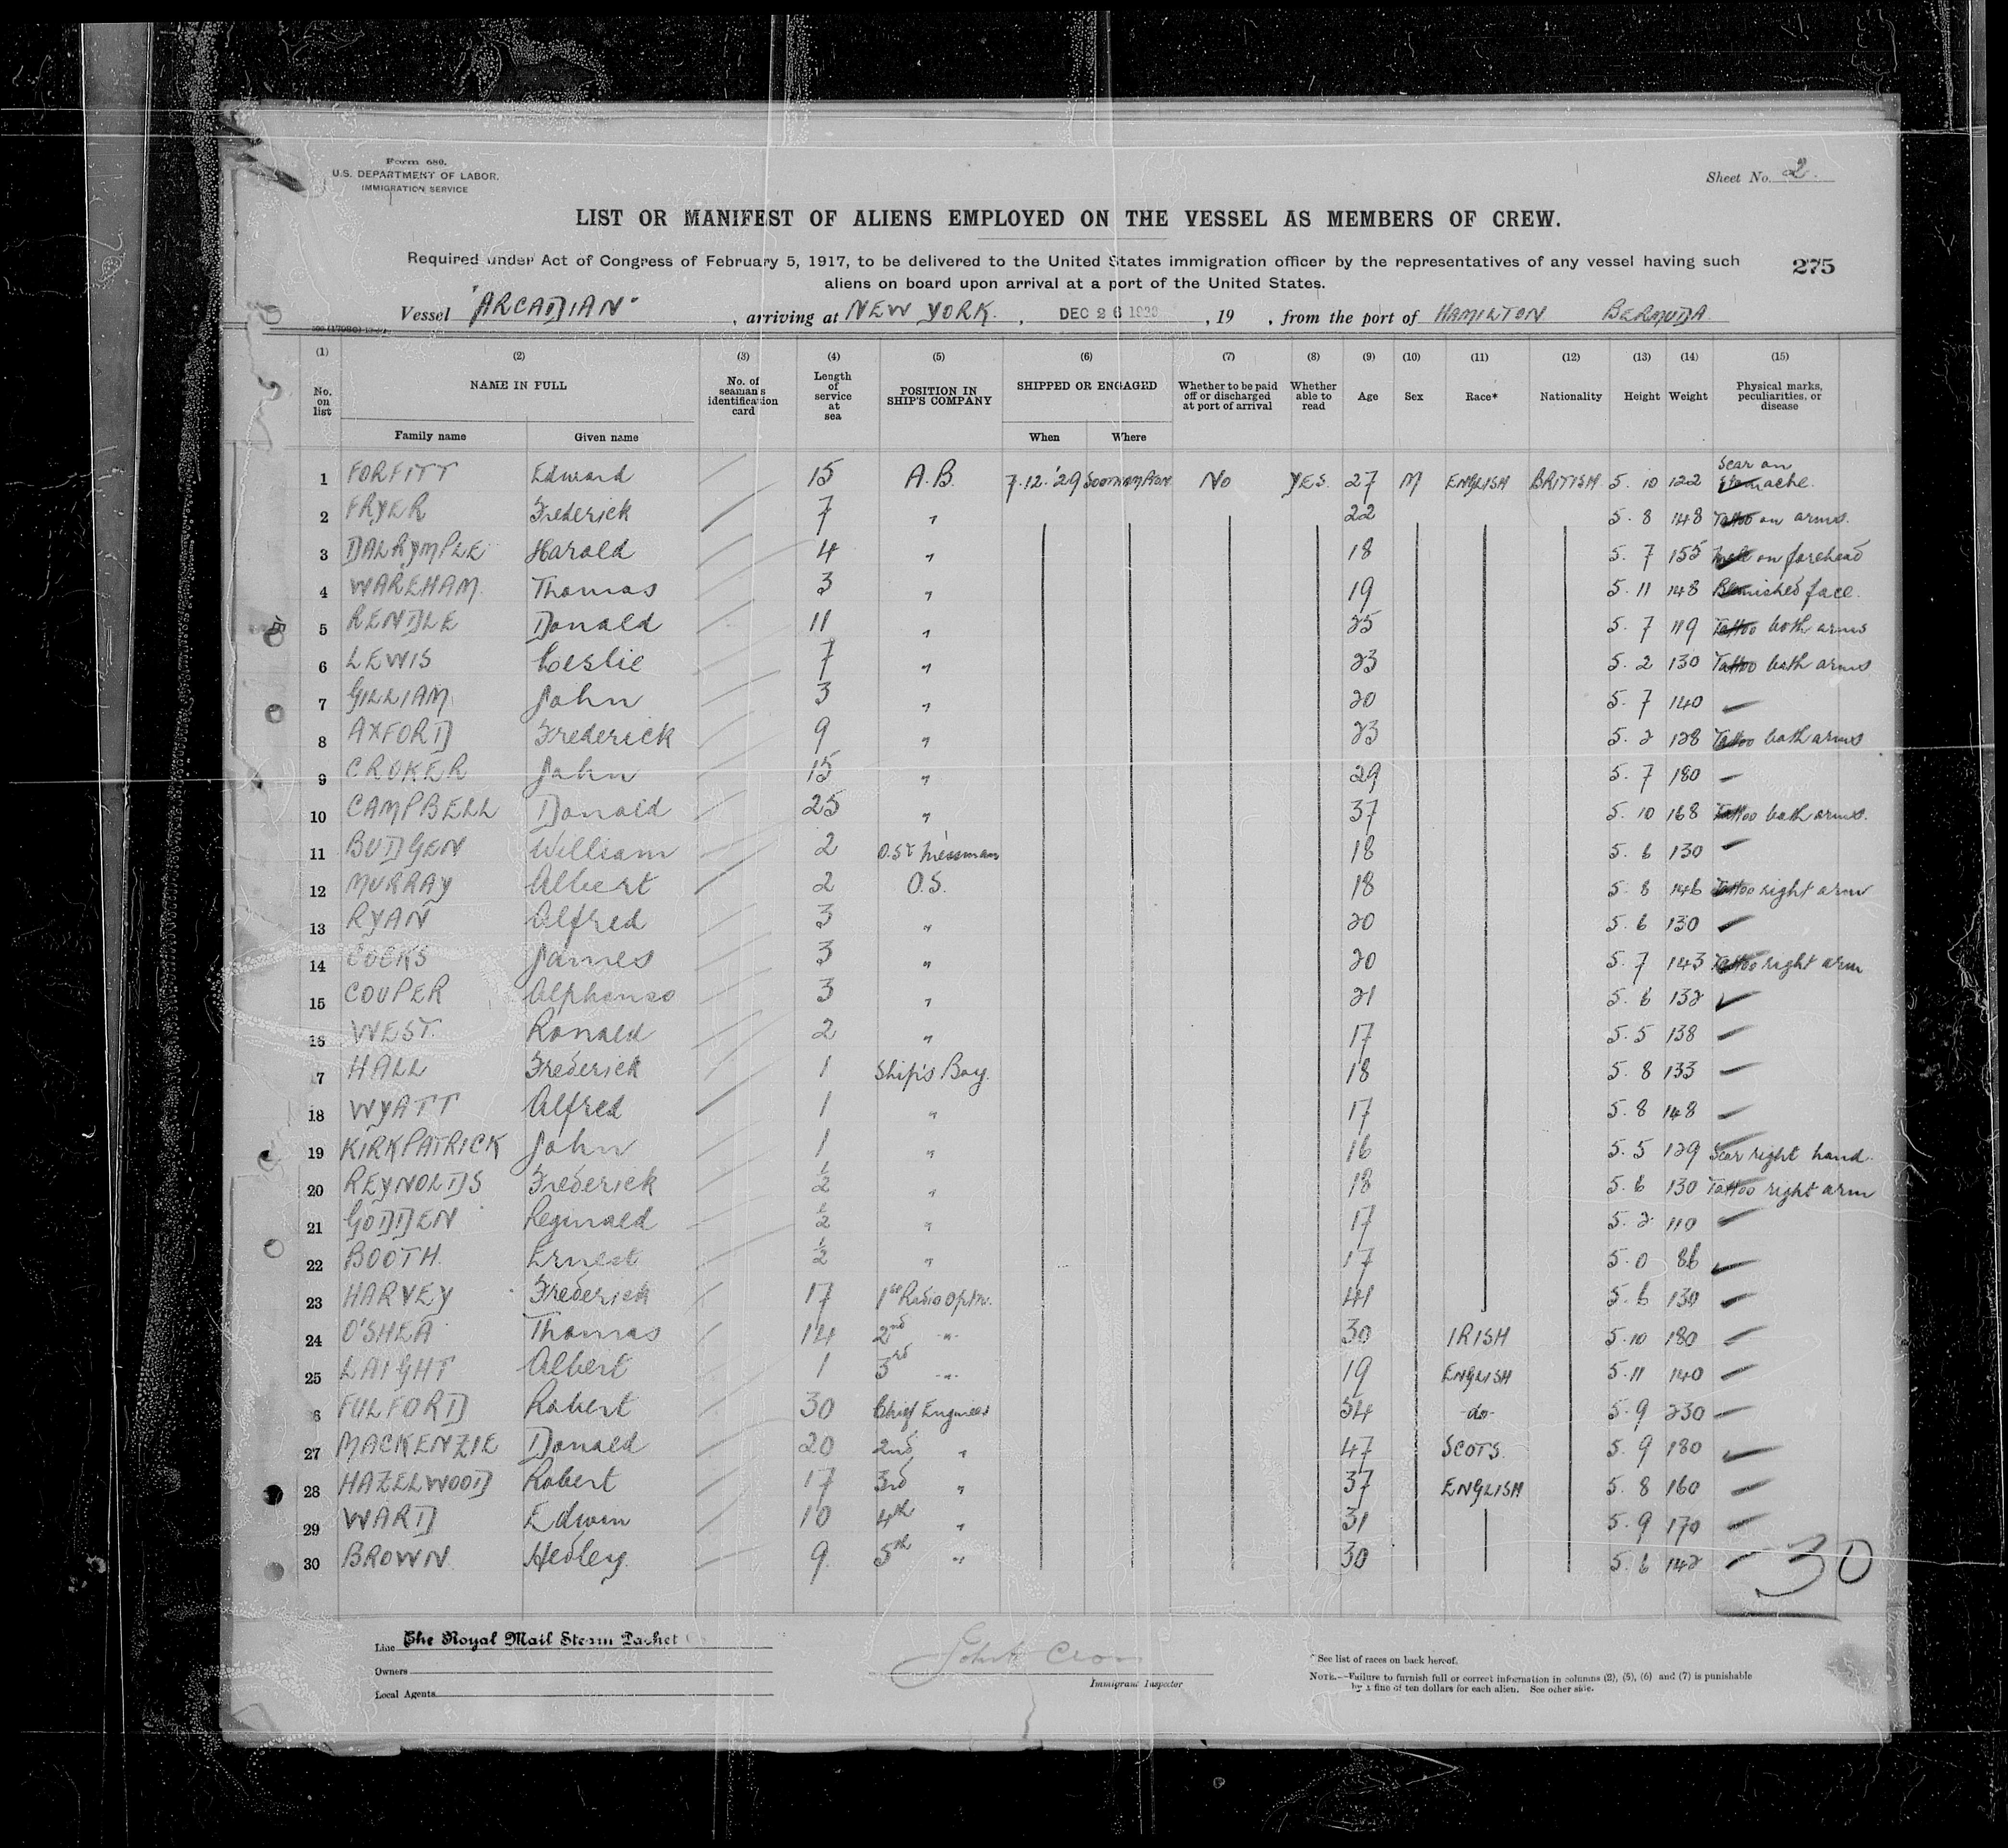 Form 680.
U.S. DEPARTMENT OF LABOR,
IMMIGRATION SERVICE
Sheet No. 2.
LIST OR MANIFEST OF ALIENS EMPLOYED ON THE VESSEL AS MEMBERS OF CREW.
Required under Act of Congress of February 5, 1917, to be delivered to the United States immigration officer by the representatives of any vessel having such
aliens on board upon arrival at a port of the United States.
275
Vessel "ARCADIAN", arriving at NEW YORK., DEC 26, 19 , from the port of HAMILTON BERMUDA
(1) (2) (3) (4) (5) (6) (7) (8) (9) (10) (11) (12) (13) (14) (15)
No. on list NAME IN FULL Family name Given name No. of seaman's identification card Length of service at sea POSITION IN SHIP'S COMPANY SHIPPED OR ENGAGED When Where Whether to be paid off or discharged at port of arrival Whether able to read Age Sex Race* Nationality Height Weight Physical marks, peculiarities, or disease
1 FORFITT Edward 15 A.B. 7.12.'29 Southampton No YES. 27 M ENGLISH BRITISH. 5. 10 122 Scar on stomache.
2 FRYER Frederick 7 " 22 5. 8 148 Tattoo on arms.
3 DALRYMPLE Harold 4 " 18 5. 7 155 Mole on forehead
4 WAREHAM. Thomas 3 " 19 5. 11 148 Blemished face.
5 RENDLE Donald 11 " 25 5. 7 119 Tattoo both arms
6 LEWIS Leslie 7 " 23 5. 2 130 Tattoo both arms
7 GILLIAM John 3 " 20 5. 7 140 —
8 AXFORD Frederick 9 " 23 5. 2 128 Tattoo both arms
9 CROKER John 15 " 29 5. 7 180 —
10 CAMPBELL Donald 25 " 37 5. 10 168 Tattoo both arms.
11 BUDGEN William 2 O.S. & Messman 18 5. 6 130 —
12 MURRAY Albert 2 O.S. 18 5. 8 146 Tattoo right arm
13 RYAN Alfred 3 " 20 5. 6 130 —
14 COCKS James 3 " 20 5. 7 143 Tattoo right arm
15 COUPER Alphonso 3 " 21 5. 6 132 —
16 WEST. Ronald 2 " 17 5. 5 138 —
7 HALL Frederick 1 Ship's Boy. 18 5. 8 133 —
18 WYATT Alfred 1 " 17 5. 8 148 —
19 KIRKPATRICK John 1 " 16 5. 5 129 Scar right hand.
20 REYNOLDS Frederick ½ " 18 5. 6 130 Tattoo right arm
21 GODDEN Reginald ½ " 17 5. 2 110 —
22 BOOTH. Ernest ½ " 17 5. 0 86 —
23 HARVEY Frederick 17 1st Radio Optr. 41 5. 6 130 —
24 O'SHEA Thomas 14 2nd " 30 IRISH 5. 10 180 —
25 LAIGHT Albert 1 3rd " 19 ENGLISH 5. 11 140 —
6 FULFORD Robert 30 Chief Engineer 54 -do- 5. 9 230 —
27 MACKENZIE Donald 20 2nd " 47 SCOTS. 5. 9 180 —
28 HAZELWOOD Robert 17 3rd " 37 ENGLISH 5. 8 160 —
29 WARD Edwin 10 4th " 31 5. 9 170 —
30 BROWN. Hedley. 9. 5th " 30 5. 6 142 —
30
Line The Royal Mail Steam Packet
Owners
Local Agents
Immigrant Inspector
* See list of races on back hereof.
NOTE.—Failure to furnish full or correct information in columns (2), (5), (6) and (7) is punishable
by a fine of ten dollars for each alien. See other side.